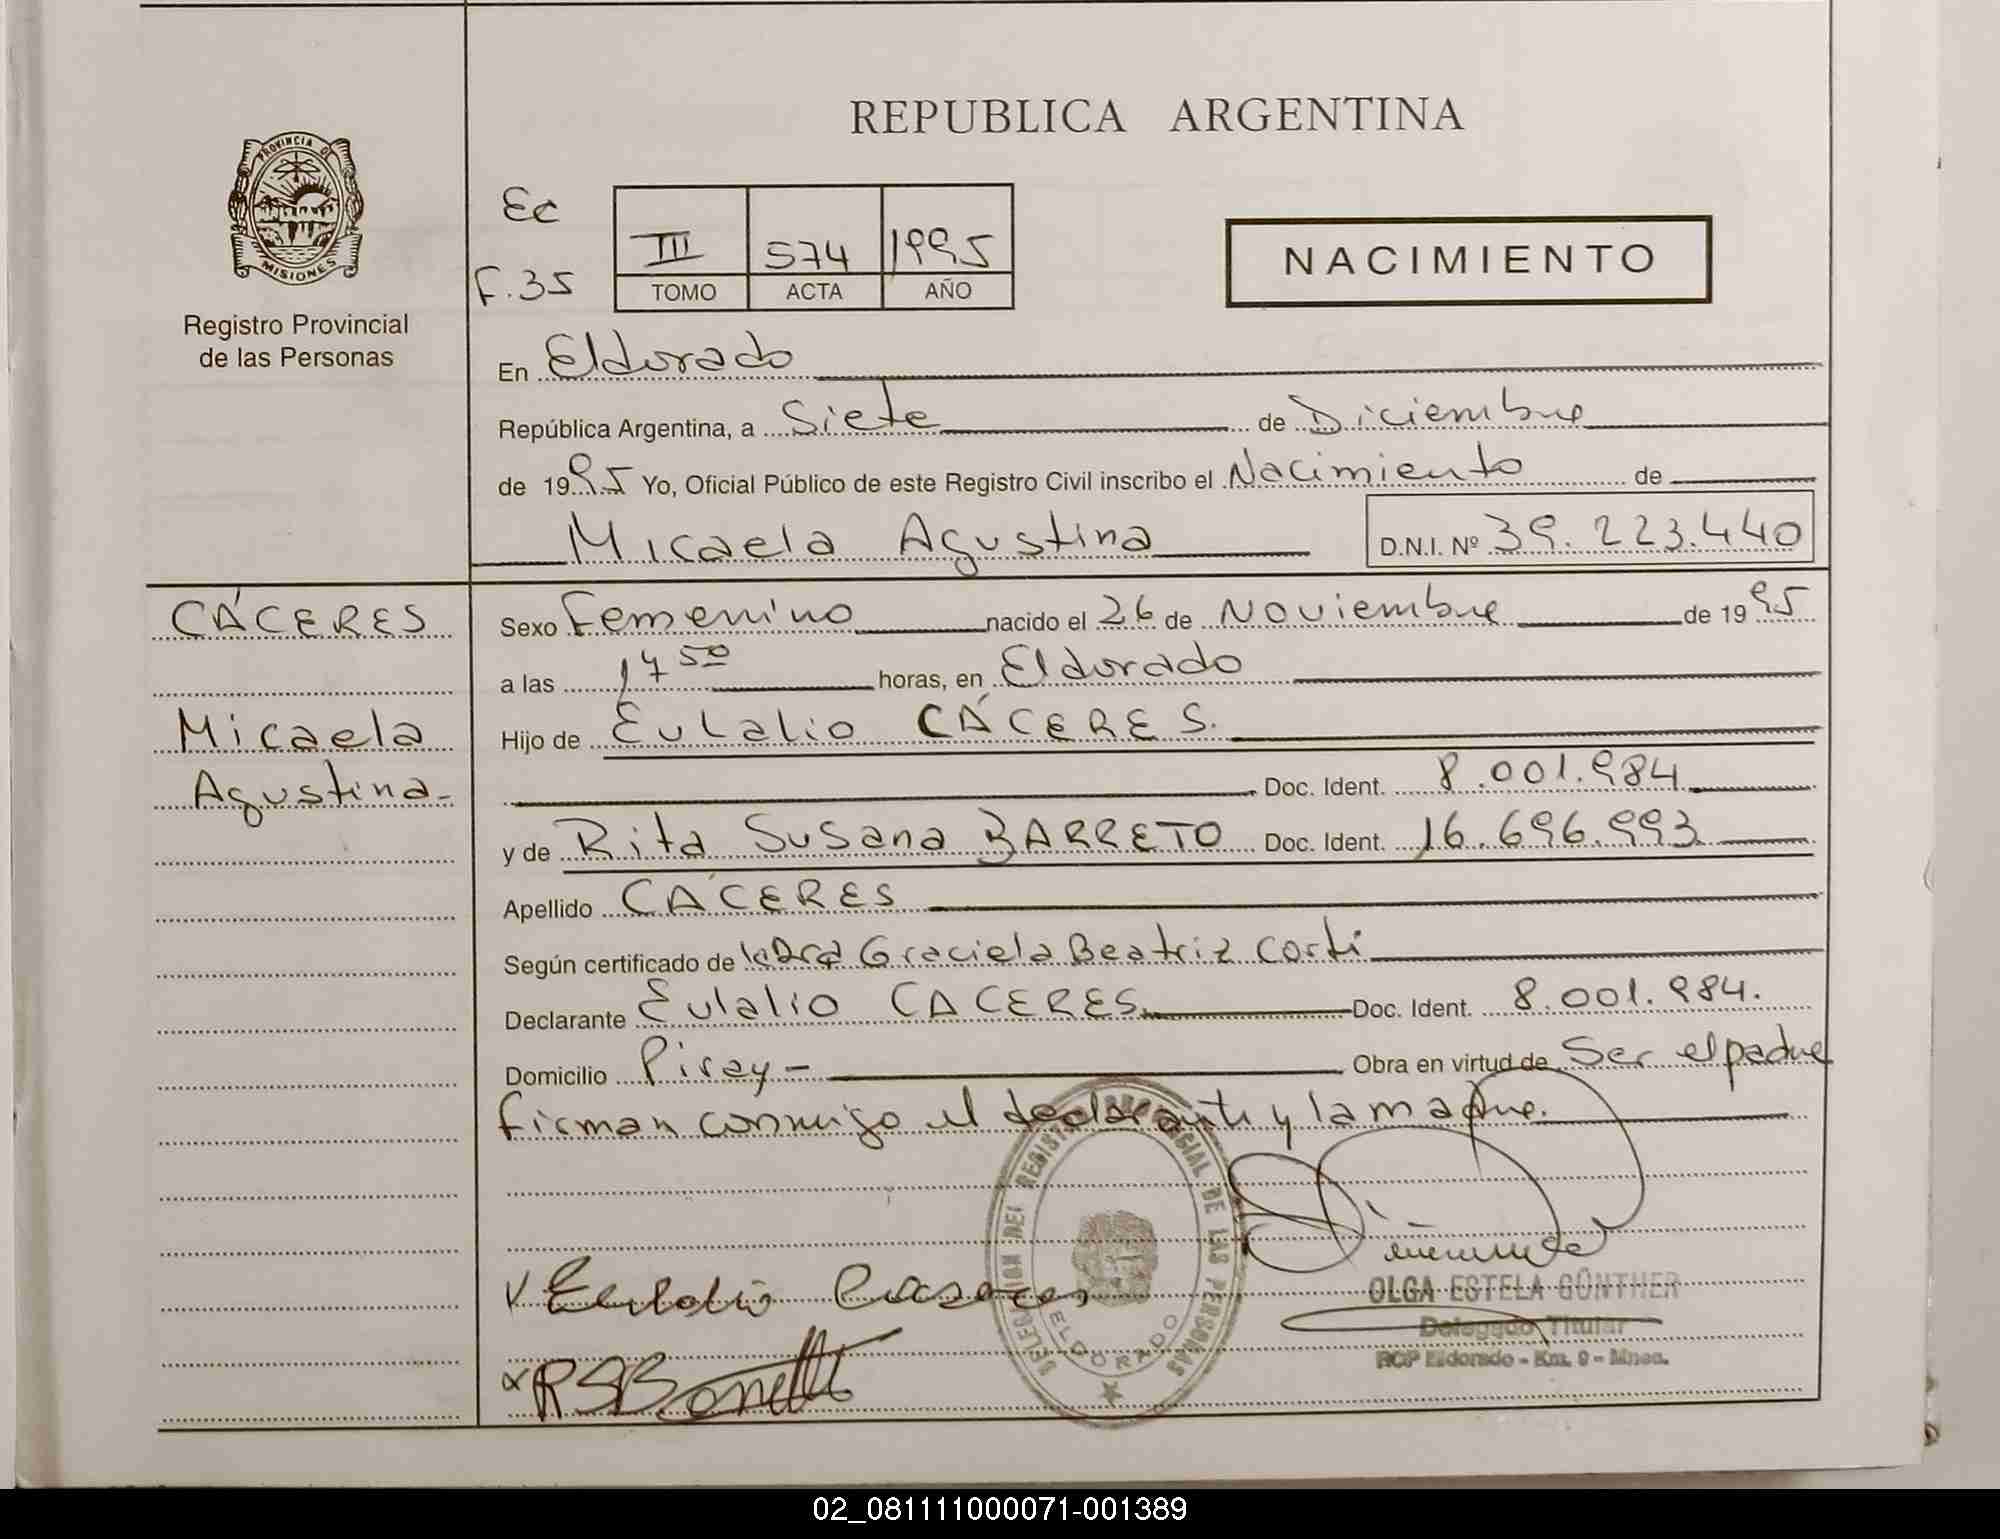 REPUBLICA ARGENTINA
PROVINCIA DE
MISIONES
Registro Provincial
de las Personas
Ec
F.35
III 574 1995
TOMO ACTA AÑO
NACIMIENTO
En Eldorado
República Argentina, a Siete de Diciembre
de 1995 Yo, Oficial Público de este Registro Civil inscribo el Nacimiento de
Micaela Agustina D.N.I. Nº 39.223.440
CÁCERES
Micaela
Agustina-
Sexo Femenino nacido el 26 de Noviembre de 1995
a las 17 50 horas, en Eldorado
Hijo de Eulalio CÁCERES.
Doc. Ident. 8.001.984
y de Rita Susana BARRETO Doc. Ident. 16.696.993
Apellido CÁCERES
Según certificado de la Dra Graciela Beatriz Corti
Declarante Eulalio CACERES Doc. Ident. 8.001.984.
Domicilio Piray- Obra en virtud de Ser el padre
firman conmigo el declarante y la madre.
DELEGACION DEL REGISTRO PROVINCIAL DE LAS PERSONAS
ELDORADO
Eulalio Caseres
OLGA ESTELA GÜNTHER
Delegado Titular
RCP Eldorado - Km. 9 - Mnes.
RSB
02_081111000071-001389